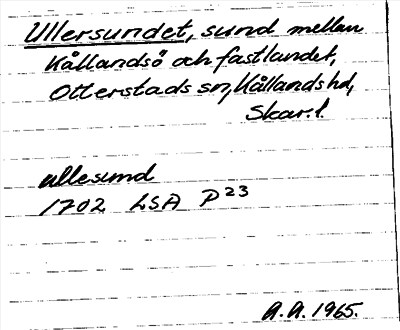 Ullersundet, sund mellan
Kållandsö och fastlandet,
Otterstads sn, Kållands hd,
Skar. l.
ullesund
1702 LSA P23
A.A. 1965.